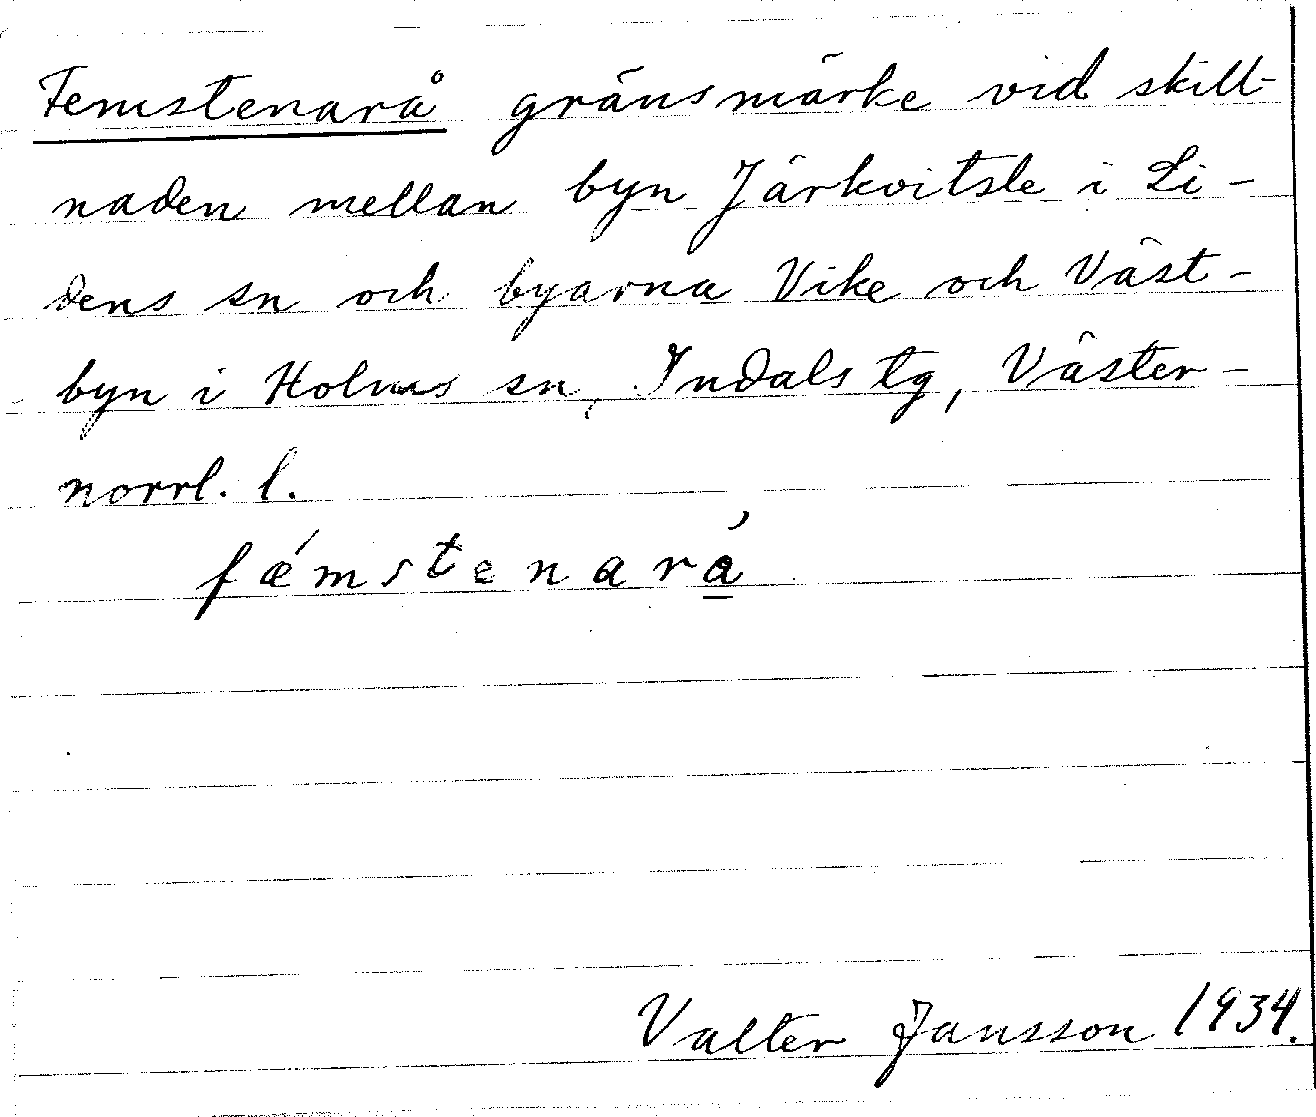 Femstenarå gränsmärke vid skill-
naden mellan byn Järkvitsle i Li-
dens sn och byarna Vike och Väst-
byn i Holms sn, Indals tg, Väster-
norrl. l.
fǽmstenará̲
Valter Jansson 1934.